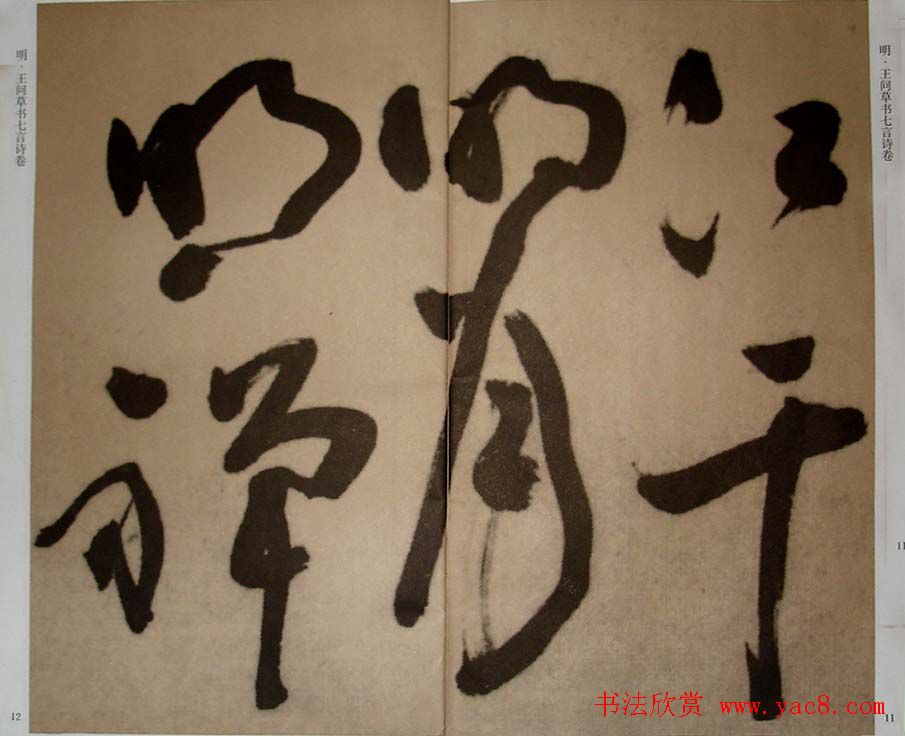 明·王问草书七言诗卷
江干
明月
禪
明·王问草书七言诗卷
11
11
12
书法欣赏 www.yac8.com